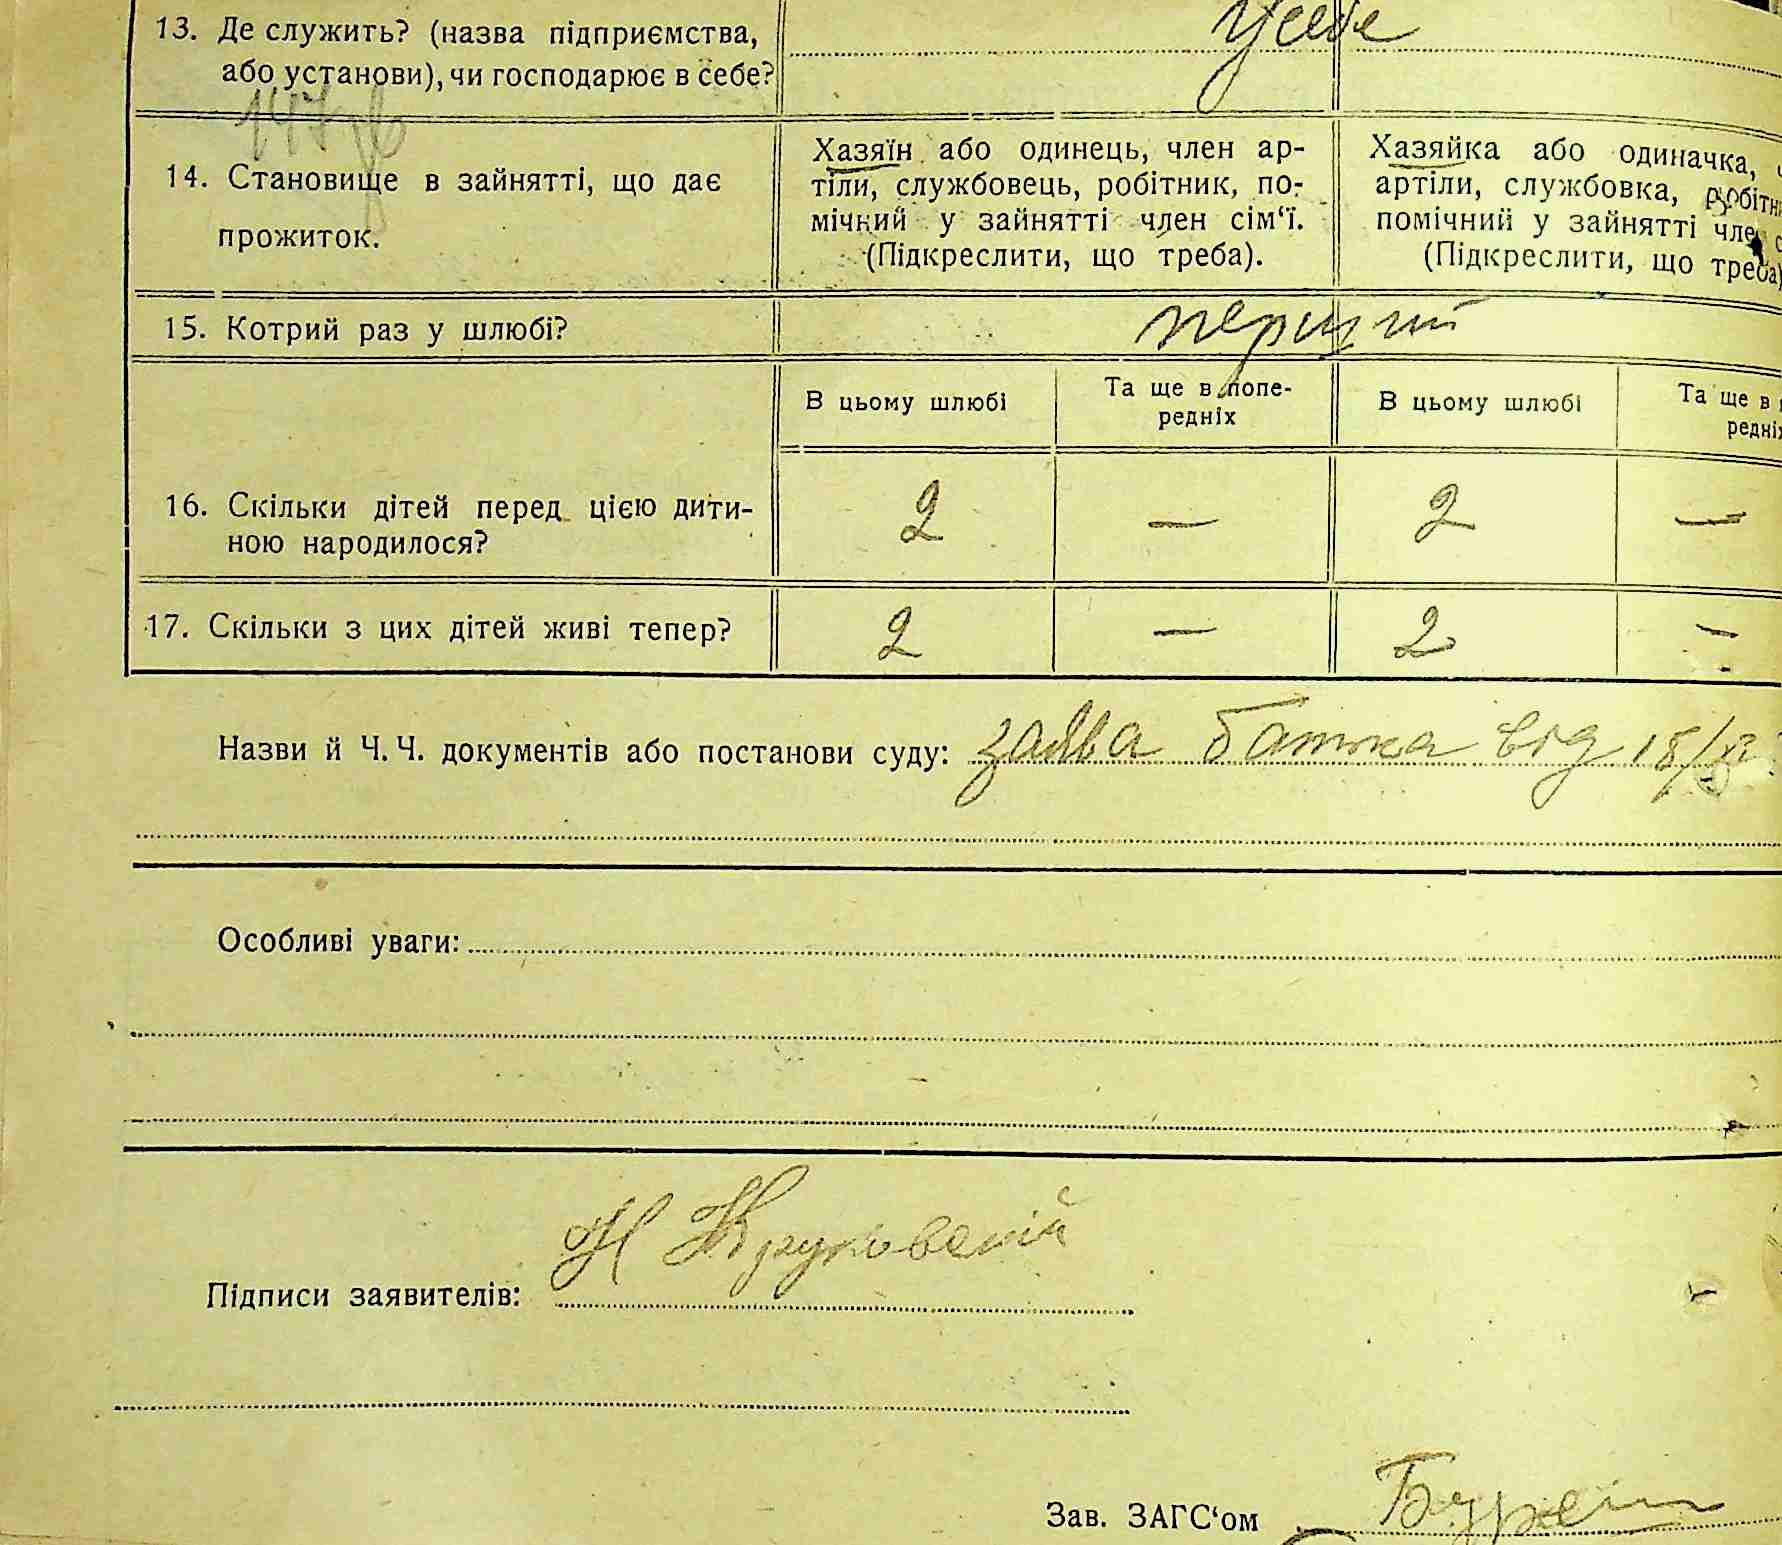 13. Де служить? (назва підприємства,
або установи), чи господарює в себе?
у себе
14. Становище в зайнятті, що дає
прожиток.
Хазяїн або одинець, член ар-
тіли, службовець, робітник, по-
мічний у зайнятті член сім‘ї.
(Підкреслити, що треба).
Хазяйка або одиначка,
артіли, службовка, робітн
помічний у зайнятті член
(Підкреслити, що треба)
15. Котрий раз у шлюбі?
перший
В цьому шлюбі
Та ще в попе-
редніх
В цьому шлюбі
Та ще в
редніх
16. Скільки дітей перед цією дити-
ною народилося?
2 — 2 —
17. Скільки з цих дітей живі тепер?
2 — 2 —
Назви й Ч. Ч. документів або постанови суду: заява батька від
Особливі уваги:
Н Круковський
Підписи заявителів:
Зав. ЗАГС‘ом